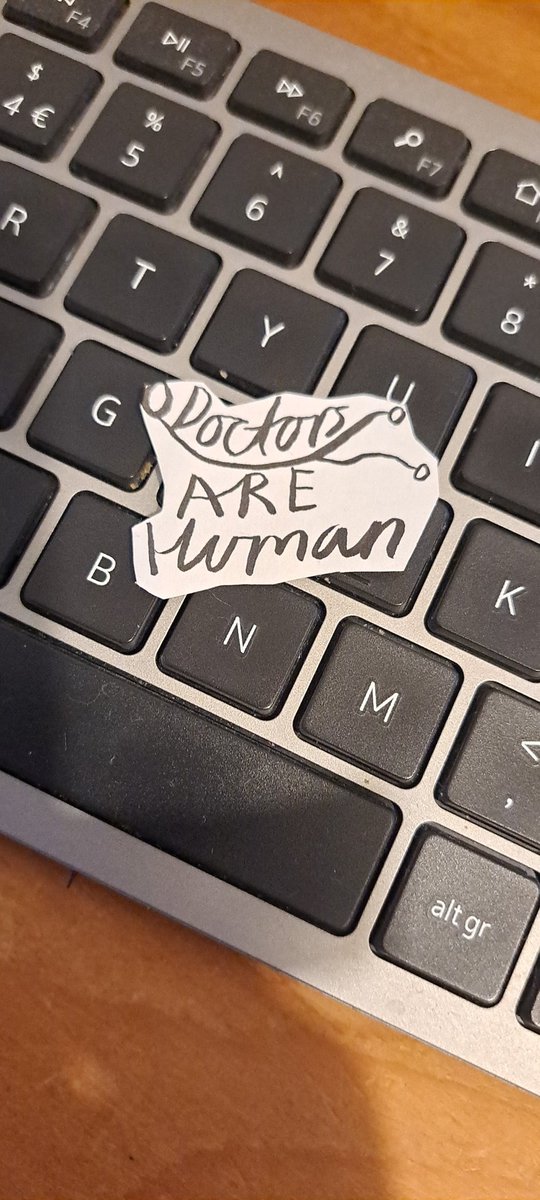 F4 F5 F6 F7
$ % ^ & *
4 € 5 6 7 8
R T Y U I
G K
B N M < ,
alt gr
Doctors
ARE
Human